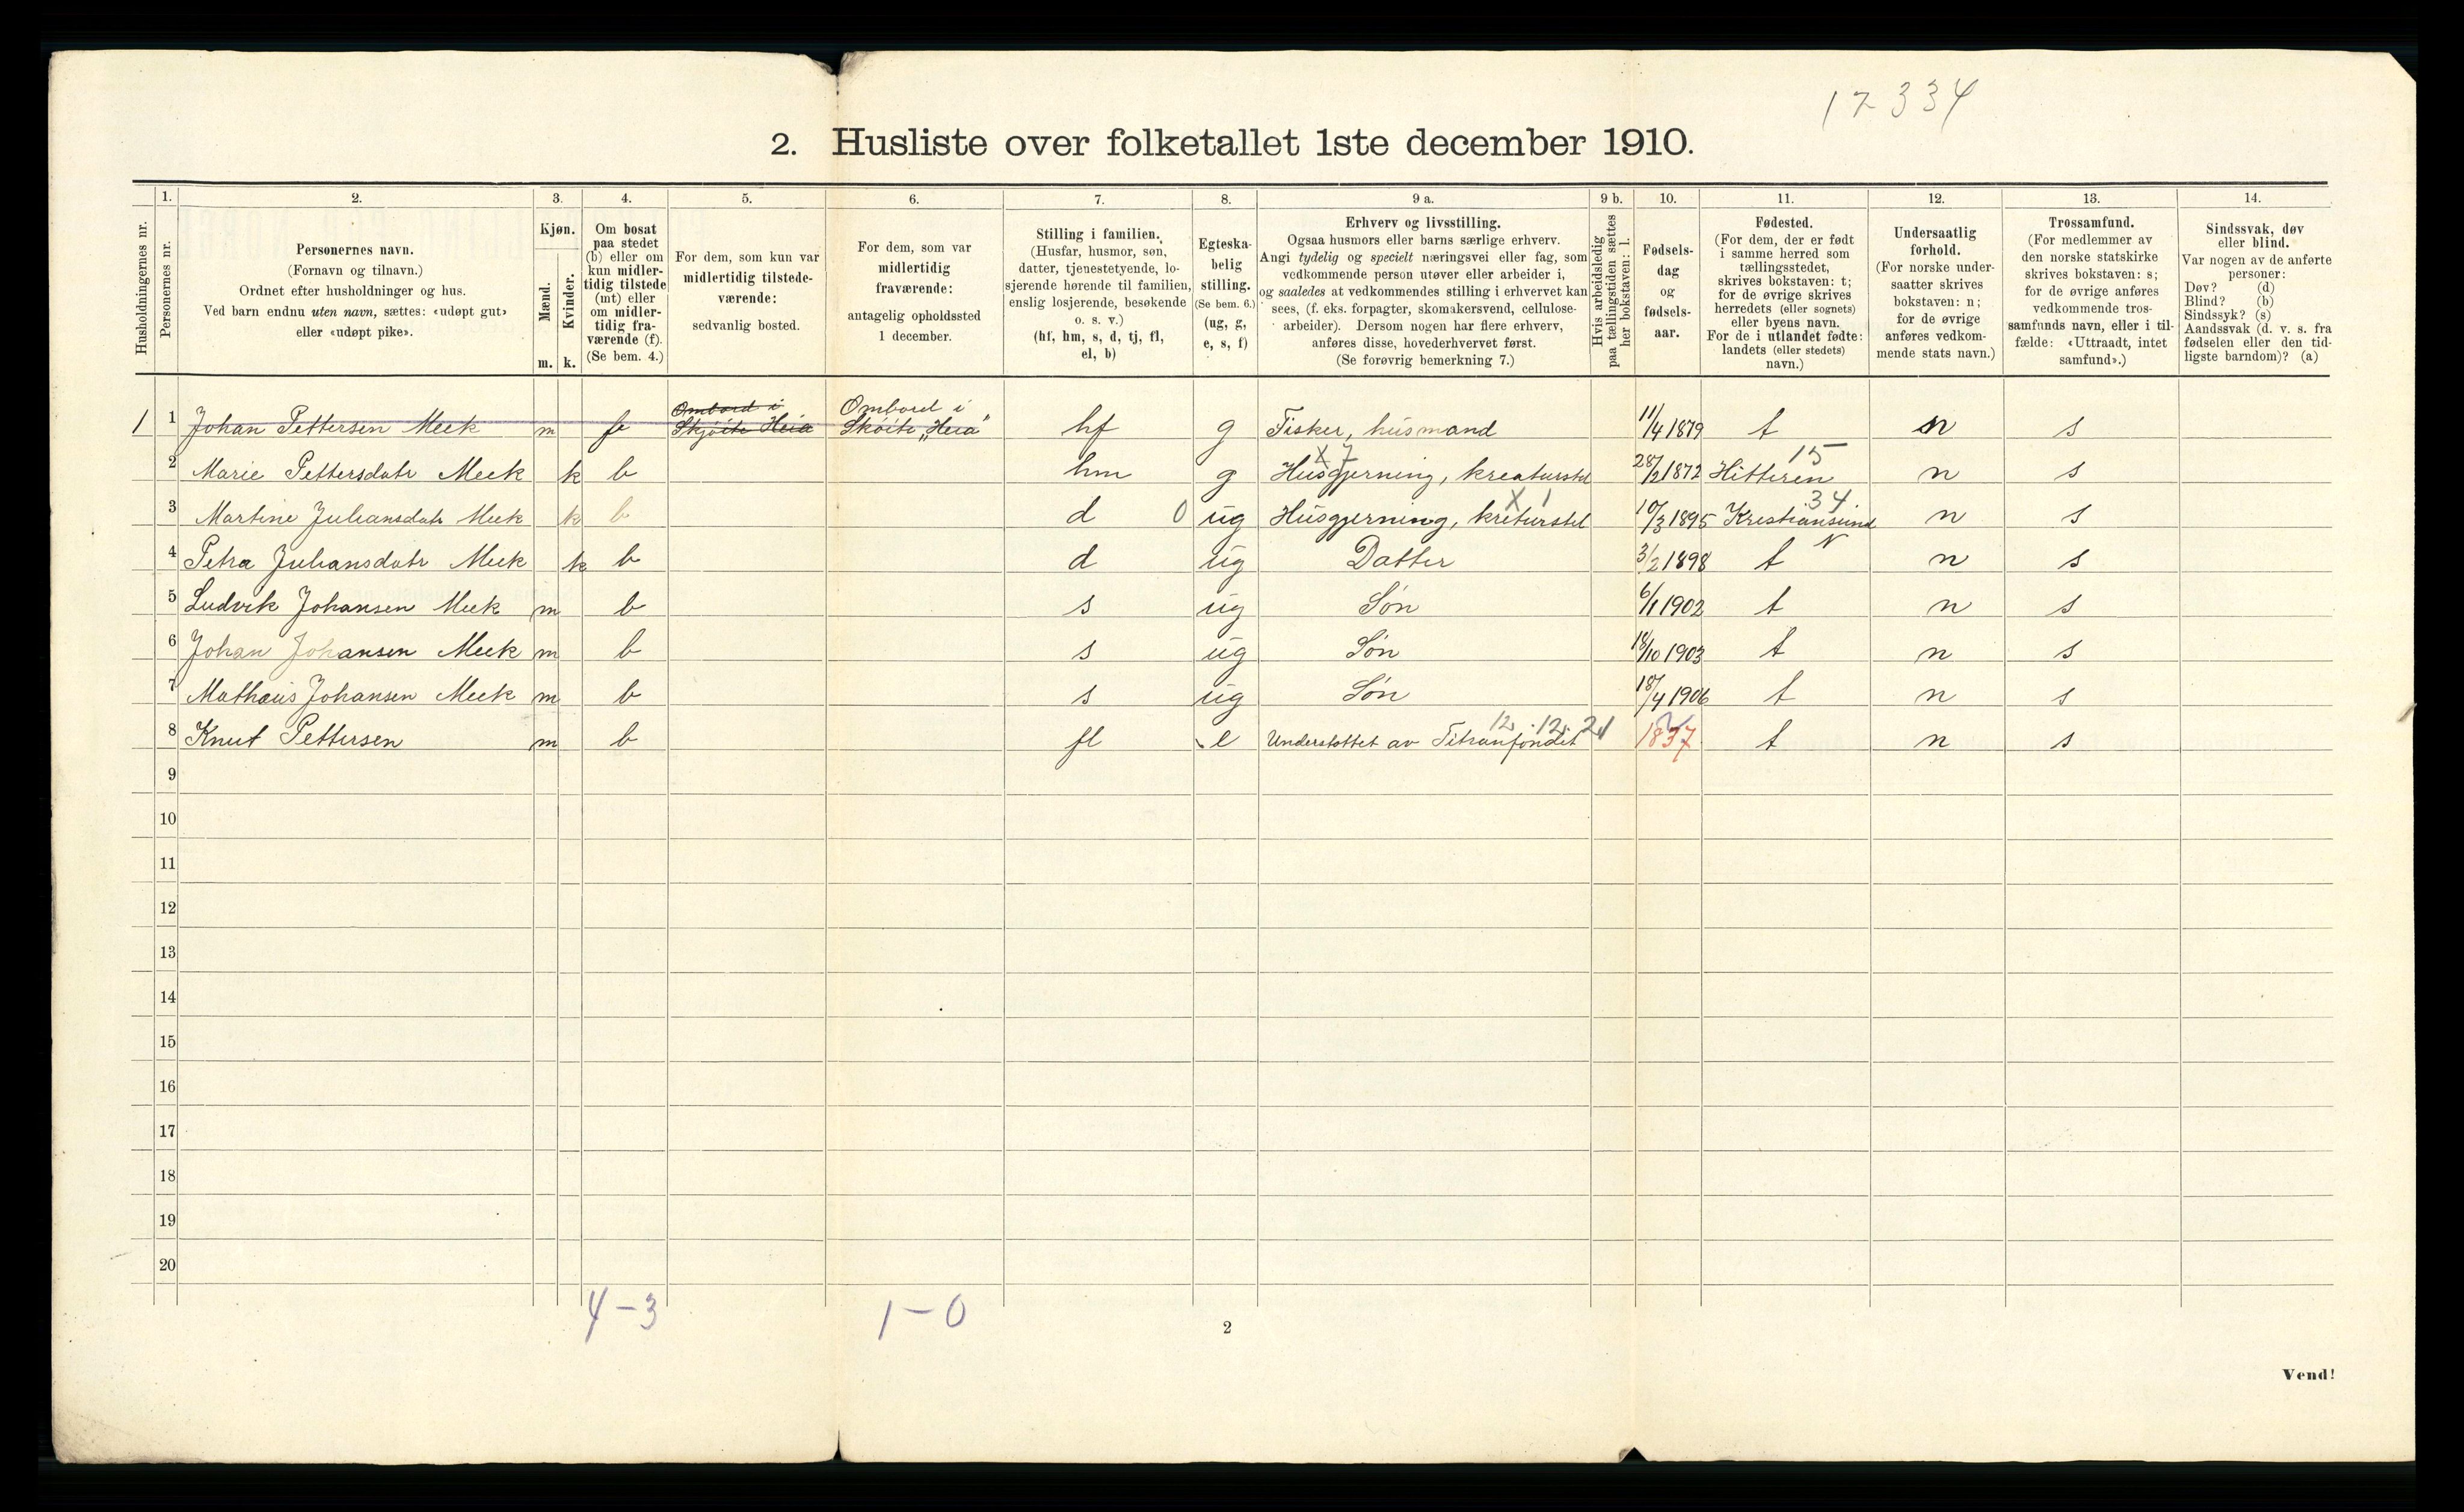 17334
2. Husliste over folketallet 1ste december 1910.
Husholdningernes nr.
1.
Personernes nr.
2.
Personernes navn.
(Fornavn og tilnavn.)
Ordnet efter husholdninger og hus.
Ved barn endnu uten navn, sættes: «udøpt gut»
eller «udøpt pike».
3.
Kjøn.
Mænd.
m.
Kvinder.
k.
4.
Om bosat
paa stedet
(b) eller om
kun midler-
tidig tilstede
(mt) eller
om midler-
tidig fra-
værende (f).
(Se bem. 4.)
5.
For dem, som kun var
midlertidig tilstede-
værende:
sedvanlig bosted.
6.
For dem, som var
midlertidig
fraværende:
antagelig opholdssted
1 december.
7.
Stilling i familien.
(Husfar, husmor, søn,
datter, tjenestetyende, lo-
sjerende hørende til familien,
enslig losjerende, besøkende
o. s. v.)
(hf, hm, s, d, tj, fl,
el, b)
8.
Egteska-
belig
stilling.
(Se bem. 6.)
(ug, g,
e, s, f)
9 a.
Erhverv og livsstilling.
Ogsaa husmors eller barns særlige erhverv.
Angi tydelig og specielt næringsvei eller fag, som
vedkommende person utøver eller arbeider i,
og saaledes at vedkommendes stilling i erhvervet kan
sees, (f. eks. forpagter, skomakersvend, cellulose-
arbeider). Dersom nogen har flere erhverv,
anføres disse, hovederhvervet først.
(Se forøvrig bemerkning 7.)
9 b.
Hvis arbeidsledig
paa tællingstiden sættes
her bokstaven: l.
10.
Fødsels-
dag
og
fødsels-
aar.
11.
Fødested.
(For dem, der er født
i samme herred som
tællingsstedet,
skrives bokstaven: t;
for de øvrige skrives
herredets (eller sognets)
eller byens navn.
For de i utlandet fødte:
landets (eller stedets)
navn.)
12.
Undersaatlig
forhold.
(For norske under-
saatter skrives
bokstaven: n;
for de øvrige
anføres vedkom-
mende stats navn.)
13.
Trossamfund.
(For medlemmer av
den norske statskirke
skrives bokstaven: s;
for de øvrige anføres
vedkommende tros-
samfunds navn, eller i til-
fælde: «Uttraadt, intet
samfund».)
14.
Sindssvak, døv
eller blind.
Var nogen av de anførte
personer:
Døv? (d)
Blind? (b)
Sindssyk? (s)
Aandssvak (d. v. s. fra
fødselen eller den tid-
ligste barndom)? (a)
1 1 Johan Pettersen Meek m f Ombord i Skjöite Heia Ombord i Sköite „Heia" hf g Fisker, husmand 11/4 1879 t n s
2 Marie Pettersdatr Meek k b hm g Husgjerning, kreaturstel X 7 28/2 1872 Hitteren 15 n s
3 Martine Juliansdatr Meek k b d 0 ug Husgjerning, kreturstel X 1 10/3 1895 Kristiansund N 34 n s
4 Petra Juliansdatr Meek k b d ug Datter 3/2 1898 t n s
5 Ludvik Johansen Meek m b s ug Søn 6/1 1902 t n s
6 Johan Johansen Meek m b s ug Søn 18/10 1903 t n s
7 Mathæus Johansen Meek m b s ug Søn 18/4 1906 t n s
8 Knut Pettersen m b fl e Understøttet av Titranfondet 12.12.21 1837 t n s
9
10
11
12
13
14
15
16
17
18
19
20
4 – 3
1 – 0
2
Vend!